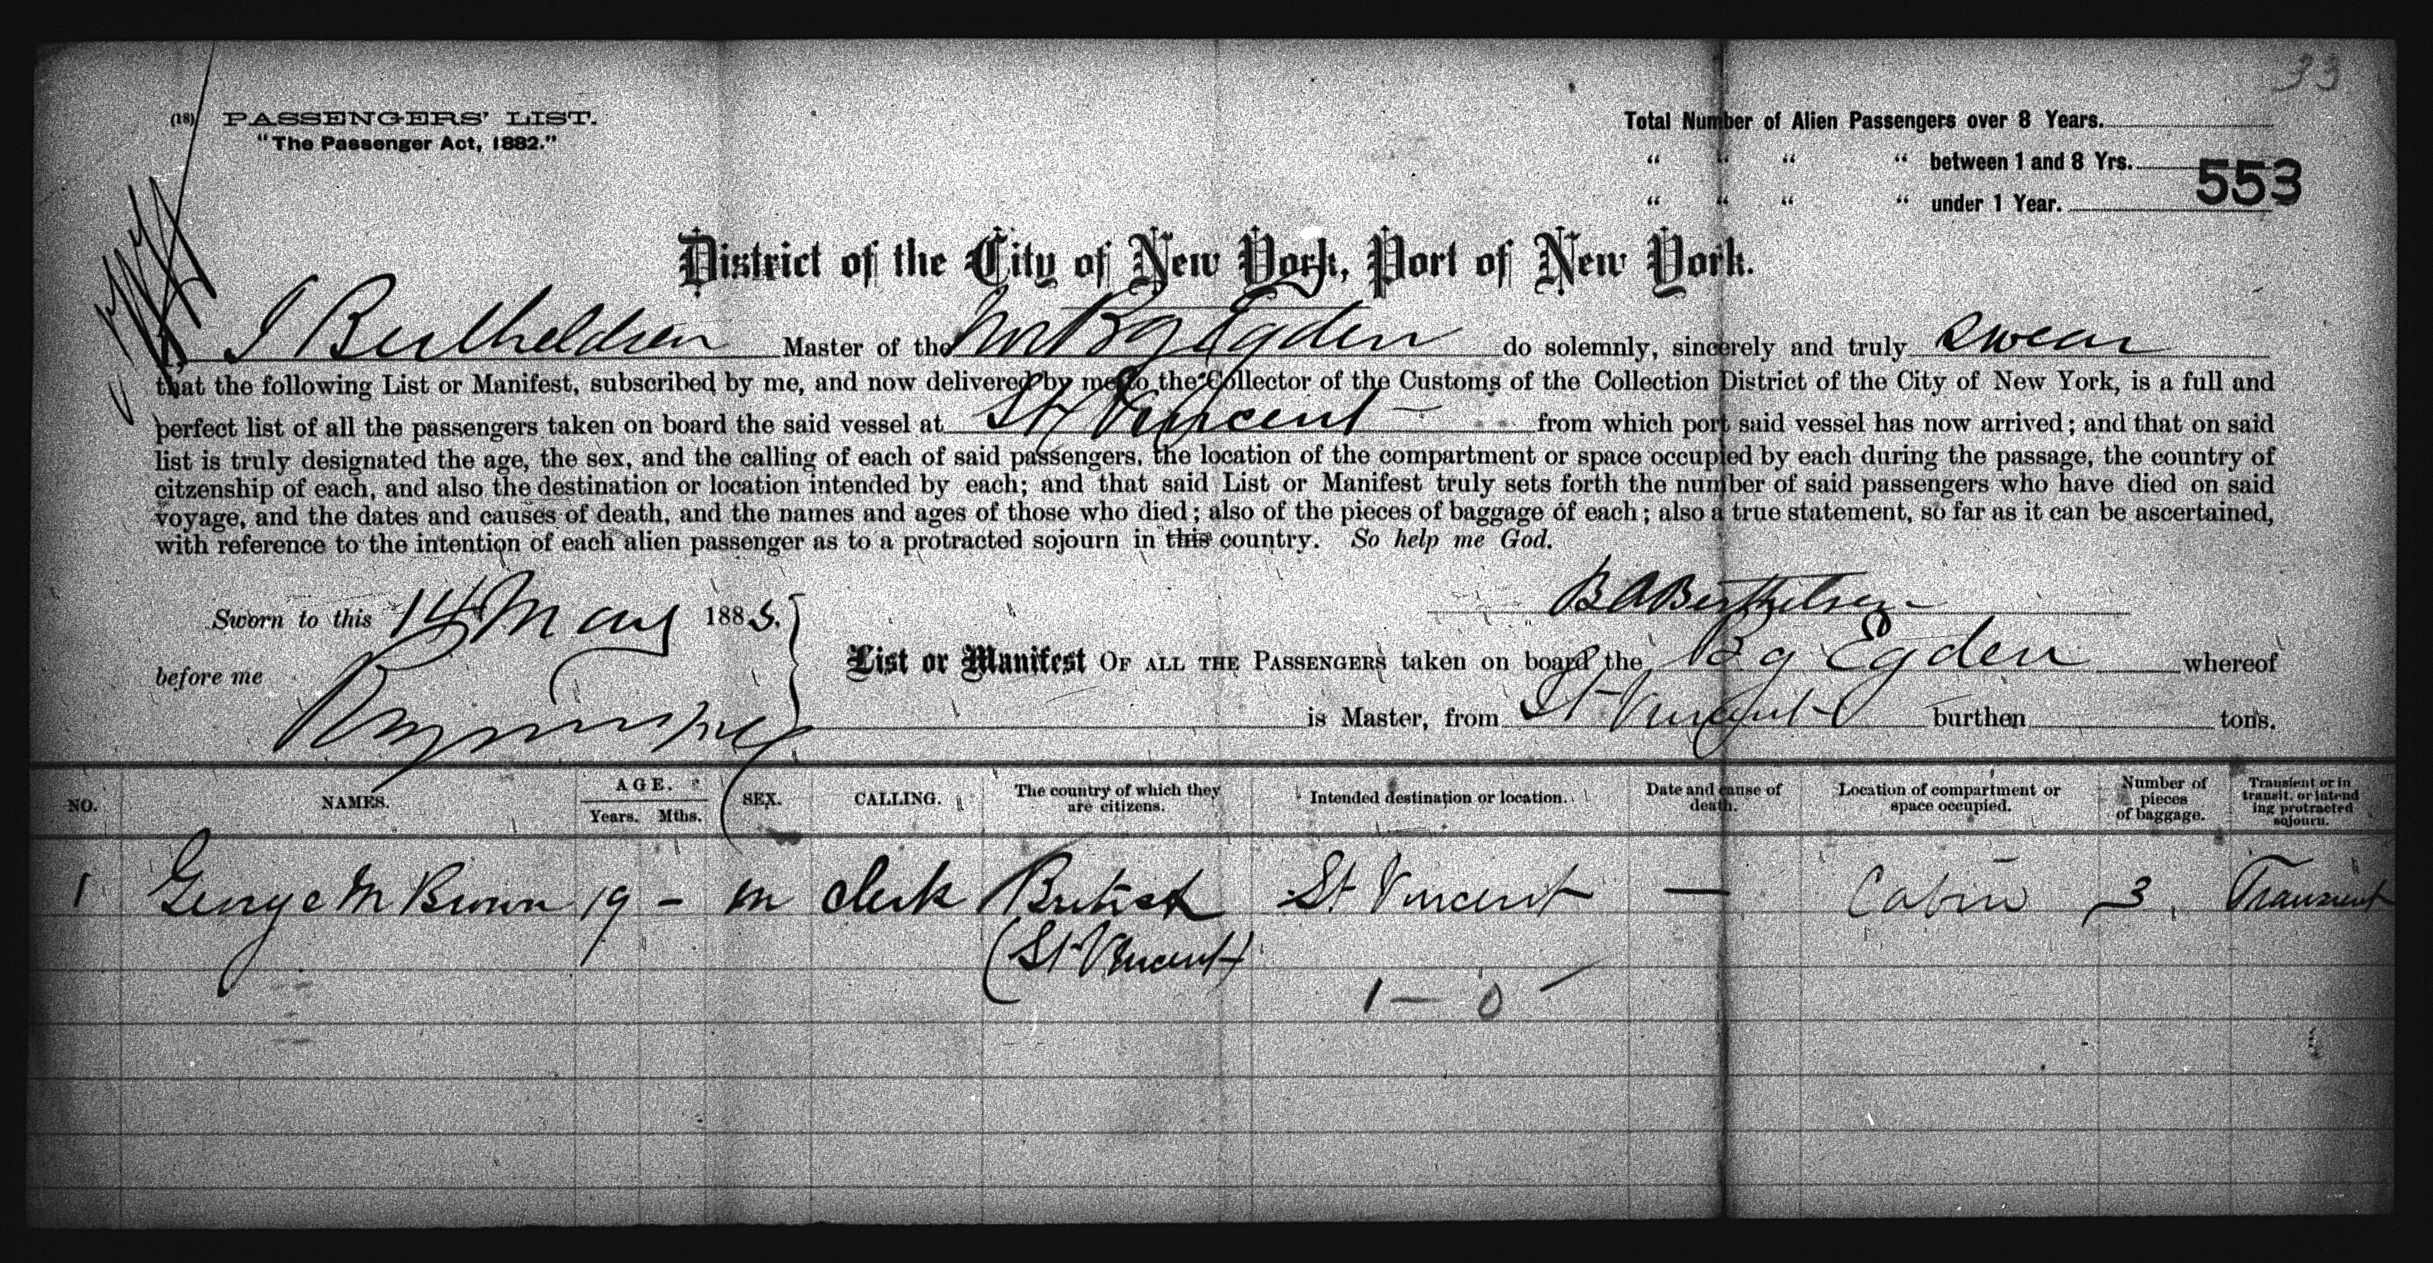 33
(18) PASSENGERS' LIST.
"The Passenger Act, 1882."
Total Number of Alien Passengers over 8 Years.
" " " " between 1 and 8 Yrs.
553
" " " " under 1 Year.
District of the City of New York, Port of New York.
I, J Bertheldsen Master of the Bg Egden do solemnly, sincerely and truly swear
that the following List or Manifest, subscribed by me, and now delivered by me to the Collector of the Customs of the Collection District of the City of New York, is a full and
perfect list of all the passengers taken on board the said vessel at St Vincent from which port said vessel has now arrived; and that on said
list is truly designated the age, the sex, and the calling of each of said passengers, the location of the compartment or space occupied by each during the passage, the country of
citzenship of each, and also the destination or location intended by each; and that said List or Manifest truly sets forth the number of said passengers who have died on said
voyage, and the dates and causes of death, and the names and ages of those who died; also of the pieces of baggage of each; also a true statement, so far as it can be ascertained,
with reference to the intention of each alien passenger as to a protracted sojourn in this country. So help me God.
B A Berthelsen
Sworn to this 14 May 1885.
before me
List or Manifest OF ALL THE PASSENGERS taken on board the Bg Egden whereof
is Master, from St Vincent burthen tons.
NO. NAMES. AGE. Years. Mths. SEX. CALLING. The country of which they are citizens. Intended destination or location. Date and cause of death. Location of compartment or space occupied. Number of pieces of baggage. Transient or in transit, or intending protracted sojourn.
1 George M Brown 19 - m clerk British St Vincent — Cabin 3 Transient
(St Vincent)
1 — 0